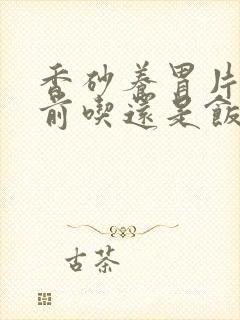 香砂養胃片
前喫還是飯
古茶